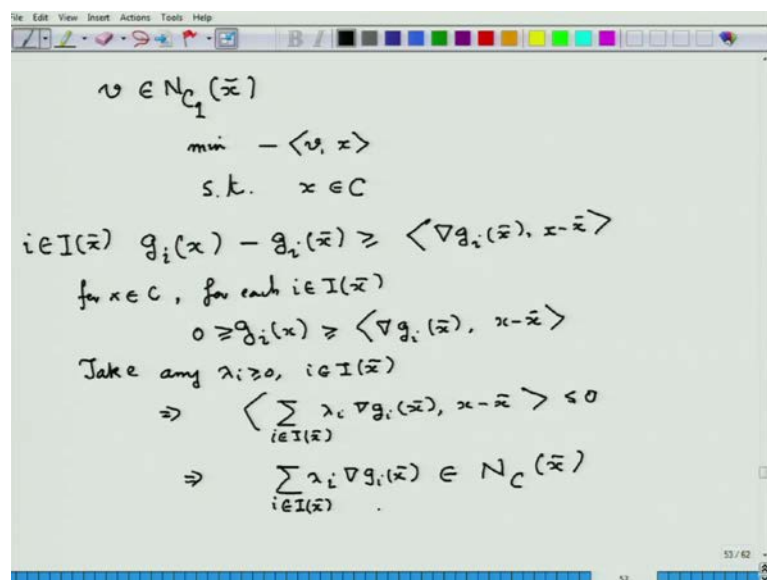 File Edit View Insert Actions Tools Help
B I
v ∈ N_{C_1}(x̄)
min − ⟨v, x⟩
s.t. x ∈ C
i ∈ I(x̄) g_i(x) − g_i(x̄) ≥ ⟨∇g_i(x̄), x − x̄⟩
for x ∈ C, for each i ∈ I(x̄)
0 ≥ g_i(x) ≥ ⟨∇g_i(x̄), x − x̄⟩
Take any λ_i ≥ 0, i ∈ I(x̄)
⇒ ⟨∑_{i∈I(x̄)} λ_i ∇g_i(x̄), x − x̄⟩ ≤ 0
⇒ ∑_{i∈I(x̄)} λ_i ∇g_i(x̄) ∈ N_C(x̄)
53/62